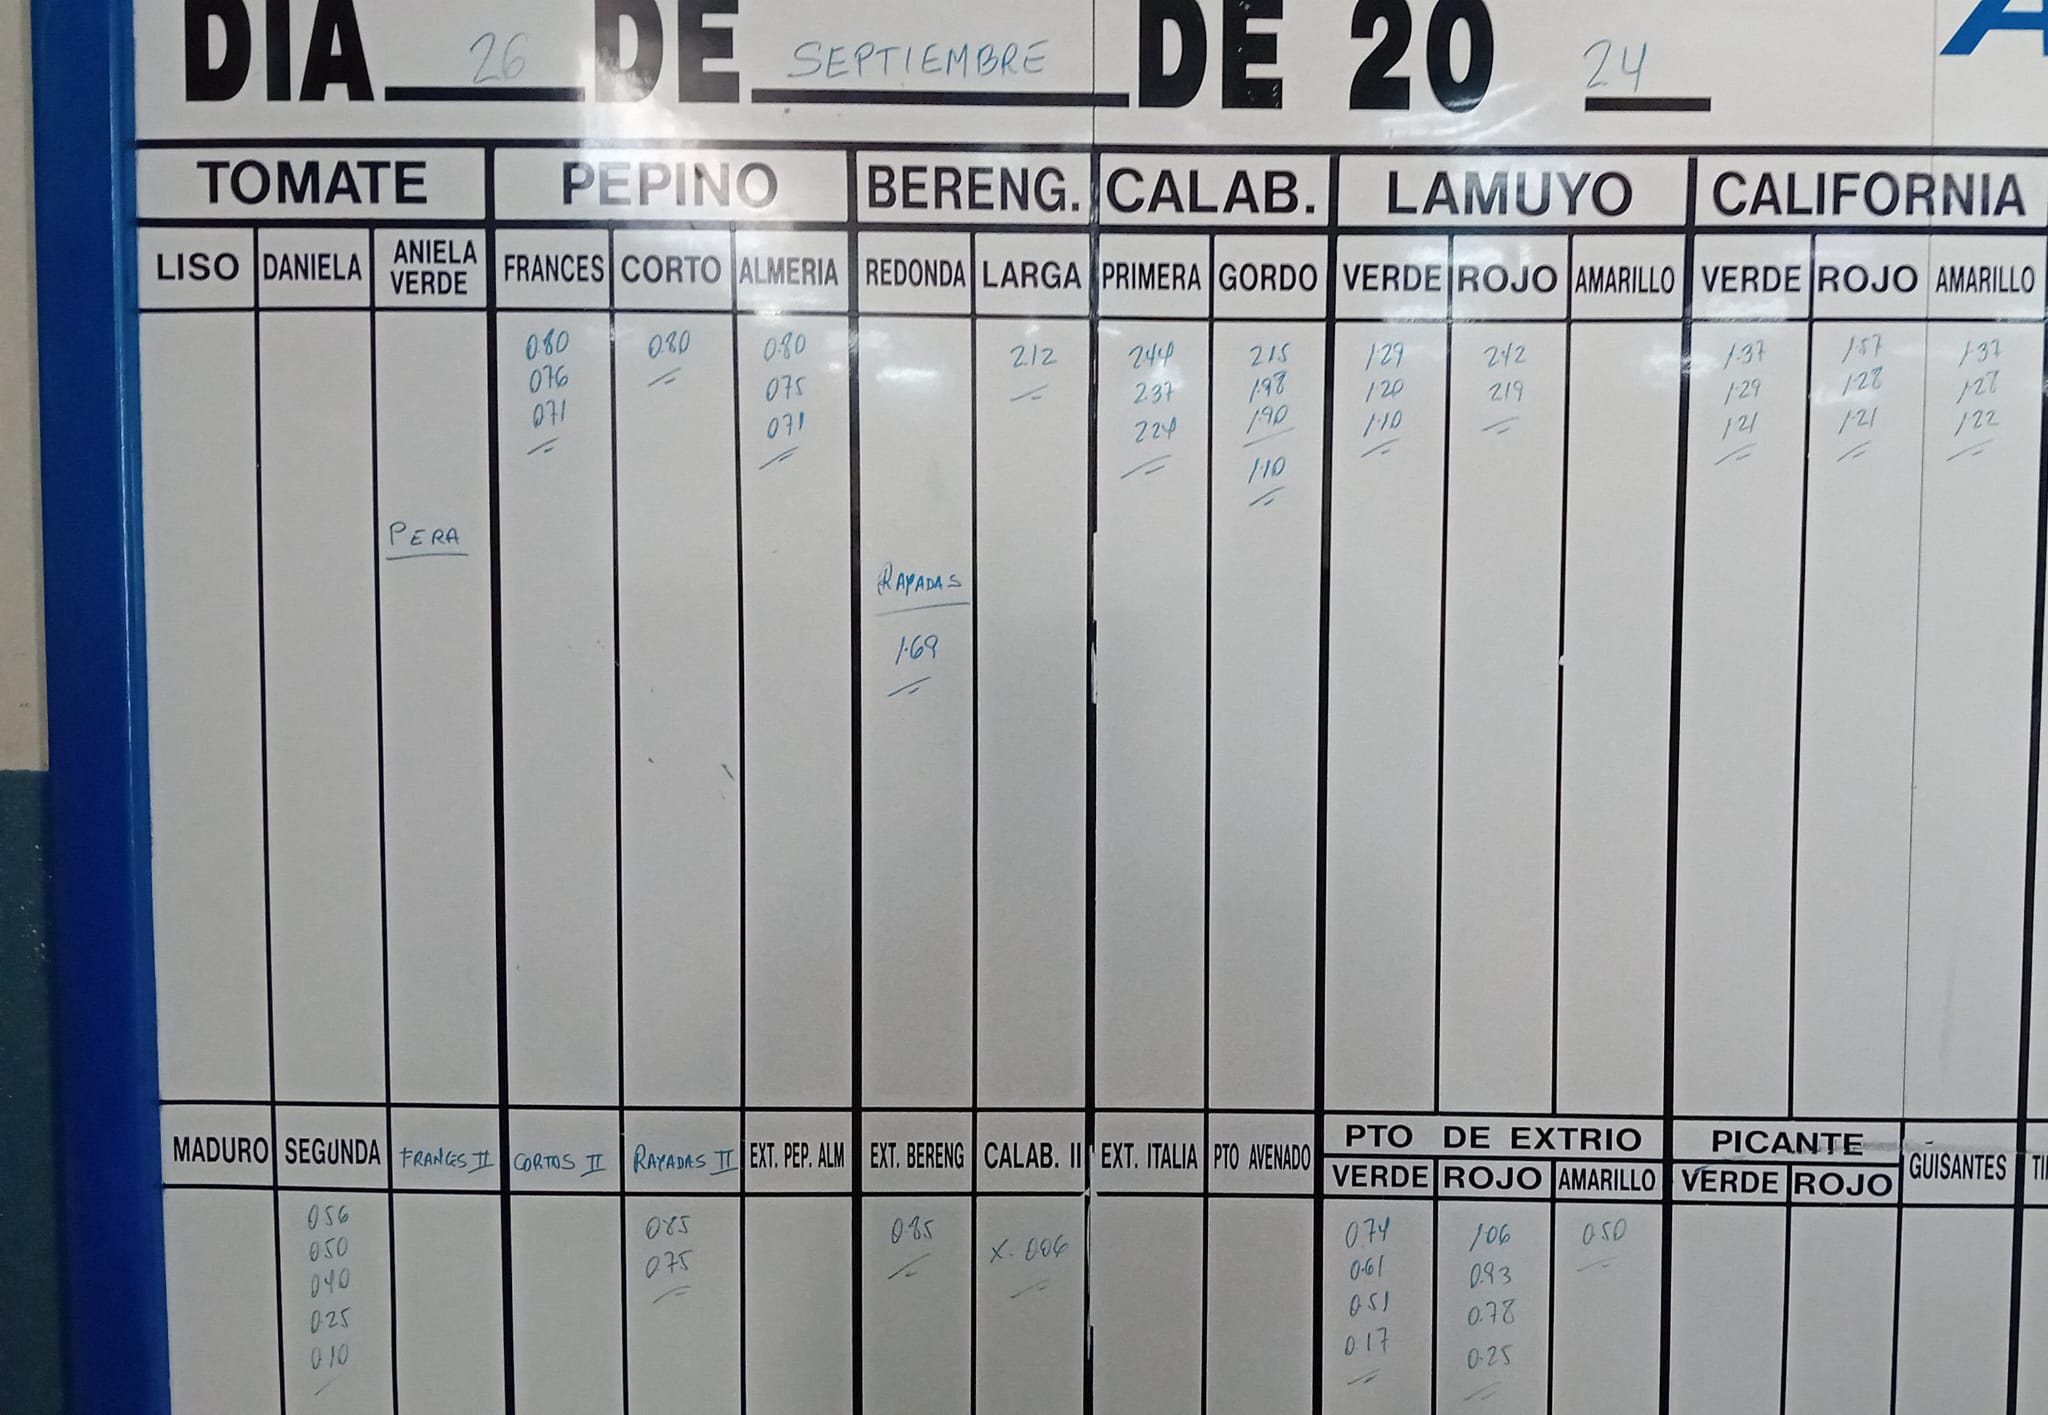 DIA 26 DE SEPTIEMBRE DE 20 24
TOMATE PEPINO BERENG. CALAB. LAMUYO CALIFORNIA
LISO DANIELA ANIELA VERDE FRANCES CORTO ALMERIA REDONDA LARGA PRIMERA GORDO VERDE ROJO AMARILLO VERDE ROJO AMARILLO
0.80 0.80 0.80 2.12 2.44 2.15 1.29 2.42 1.37 1.57 1.37
0.76 0.75 2.37 1.98 1.20 2.19 1.29 1.28 1.28
0.71 0.71 2.24 1.90 1.10 1.21 1.21 1.22
1.10
PERA
RAYADAS
1.69
MADURO SEGUNDA FRANCES II CORTOS II RAYADAS II EXT. PEP. ALM EXT. BERENG CALAB. II EXT. ITALIA PTO AVENADO PTO DE EXTRIO PICANTE GUISANTES
VERDE ROJO AMARILLO VERDE ROJO
0.56 0.85 0.85 X. 006 0.74 1.06 0.50
0.50 0.75 0.61 0.93
0.40 0.51 0.78
0.25 0.17 0.25
0.10